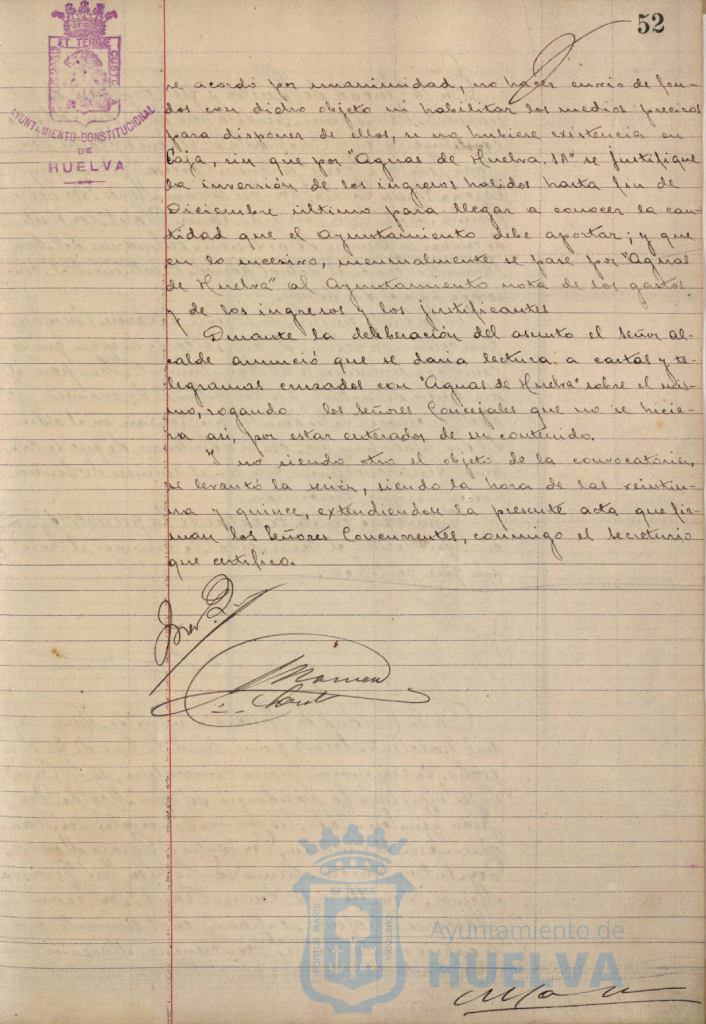 52
PORTUS MARIS ET TERRE CUSTODIA
AYUNTAMIENTO CONSTITUCIONAL
DE
HUELVA
se acordó por unanimidad, no hacer envio de fon-
dos con dicho objeto ni habilitar los medios precisos
para disponer de ellos, si no hubiere existencia en
Caja, sin que por "Aguas de Huelva, SA" se justifique
la inversión de los ingresos habidos hasta fin de
Diciembre último para llegar a conocer la can-
tidad que el Ayuntamiento debe aportar; y que
en lo sucesivo, mensualmente se pase por "Aguas
de Huelva" al Ayuntamiento nota de los gastos
y de los ingresos y los justificantes
Durante la deliberación del asunto el señor al-
calde anunció que se daria lectura a cartas y te-
legramas cruzados con "Aguas de Huelva" sobre el mis-
mo, rogando los Señores Concejales que no se hicie-
ra asi, por estar enterados de su contenido.
Y no siendo otro el objeto de la convocatoria,
se levantó la sesión, siendo la hora de las veintiu-
na y quince, extendiendose la presente acta que fir-
man los Señores Concurrentes, conmigo el secretario
que certifico.
PORTUS MARIS ET TERRE CUSTODIA
Ayuntamiento de
HUELVA